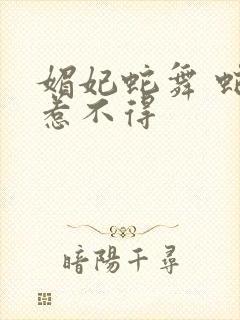 媚妃蛇舞 蛇
惹不得
暗陽千尋